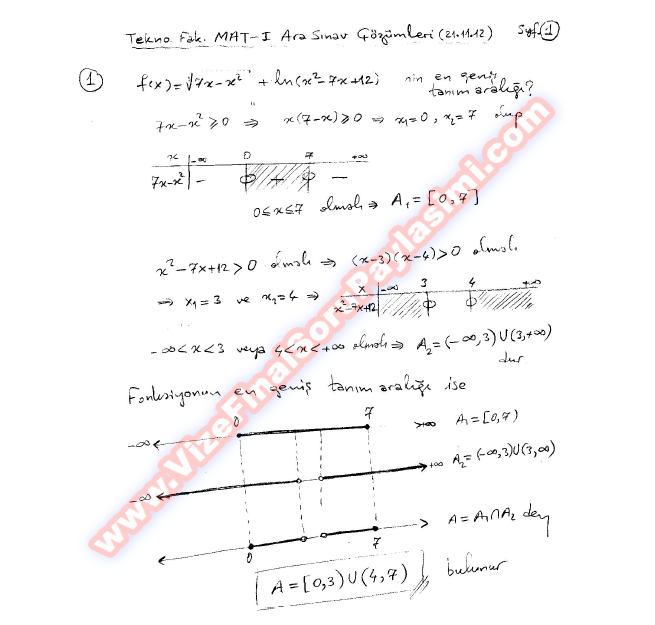 Tekno. Fak. MAT-I Ara Sınav Çözümleri (21.11.12) Syf. 1
1 f(x)=√7x-x² + ln(x²-7x+12) nin en geniş
tanım aralığı?
7x-x² ≥ 0 ⇒ x(7-x) ≥ 0 ⇒ x₁=0, x₂=7 olup
x -∞ 0 7 +∞
7x-x² - + -
0≤x≤7 olmalı ⇒ A₁=[0,7]
x²-7x+12>0 olmalı ⇒ (x-3)(x-4)>0 olmalı
x -∞ 3 4 +∞
⇒ x₁=3 ve x₂=4 ⇒ x²-7x+12
-∞<x<3 veya 4<x<+∞ olmalı ⇒ A₂=(-∞,3)∪(3,+∞)
dur
Fonksiyonun en geniş tanım aralığı ise
0 7
-∞ +∞ A₁=[0,7)
-∞ +∞ A₂=(-∞,3)∪(3,∞)
0 7 A=A₁∩A₂ den
A=[0,3)∪(4,7) bulunur
www.VizeFinalSoruPaylasimi.com